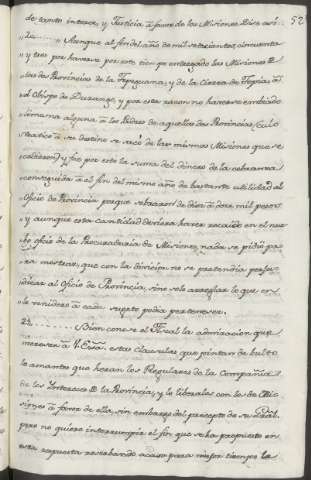 52
de tanto interes, y Justicia á favor de los Misiones Dise así:
Aunque al fin del año de mil setecientos cincuenta
y tres por haverse por este tiempo entregado las Misiones
de las Provincias de la Tepeguana, y de la Cierra de Topia, al
Obispo de Durango, y por esta razon no haverse embiado
limosna alguna á los Padres de aquellas dos Provincias
se saco de las mismas Misiones que se
y fue por esta la suma del dinero de la cobranza
conseguida á el fin del mismo año de bastante utilidad al
Oficio de Provincia porque sobraron de diez á doce mil pesos
y aunque esta cantidad deviera haver recaido en el nue-
bo oficio de la Procuraduria de Misiones, nada se pidió pa-
ra mostrar, que con la divicion no se pretendia perju-
dicar al Oficio de Provincia, sino solo arreglar lo que en
lo venidero á cada sujeto podia pertenecer.
Bien conose el Fiscal la admiracion que
merecen á V. Exa. estas clausulas que pintan de bulto
lo amantes que heran los Regulares de la Compañia
de los Intereses de la Provincia, y lo liberales con los de Mic-
siones á favor de ella sin embargo del precepto de su
pero no quiere interrumpir el fin que se ha propuesto en
esta respuesta reservando acaso para mejor tiempo la